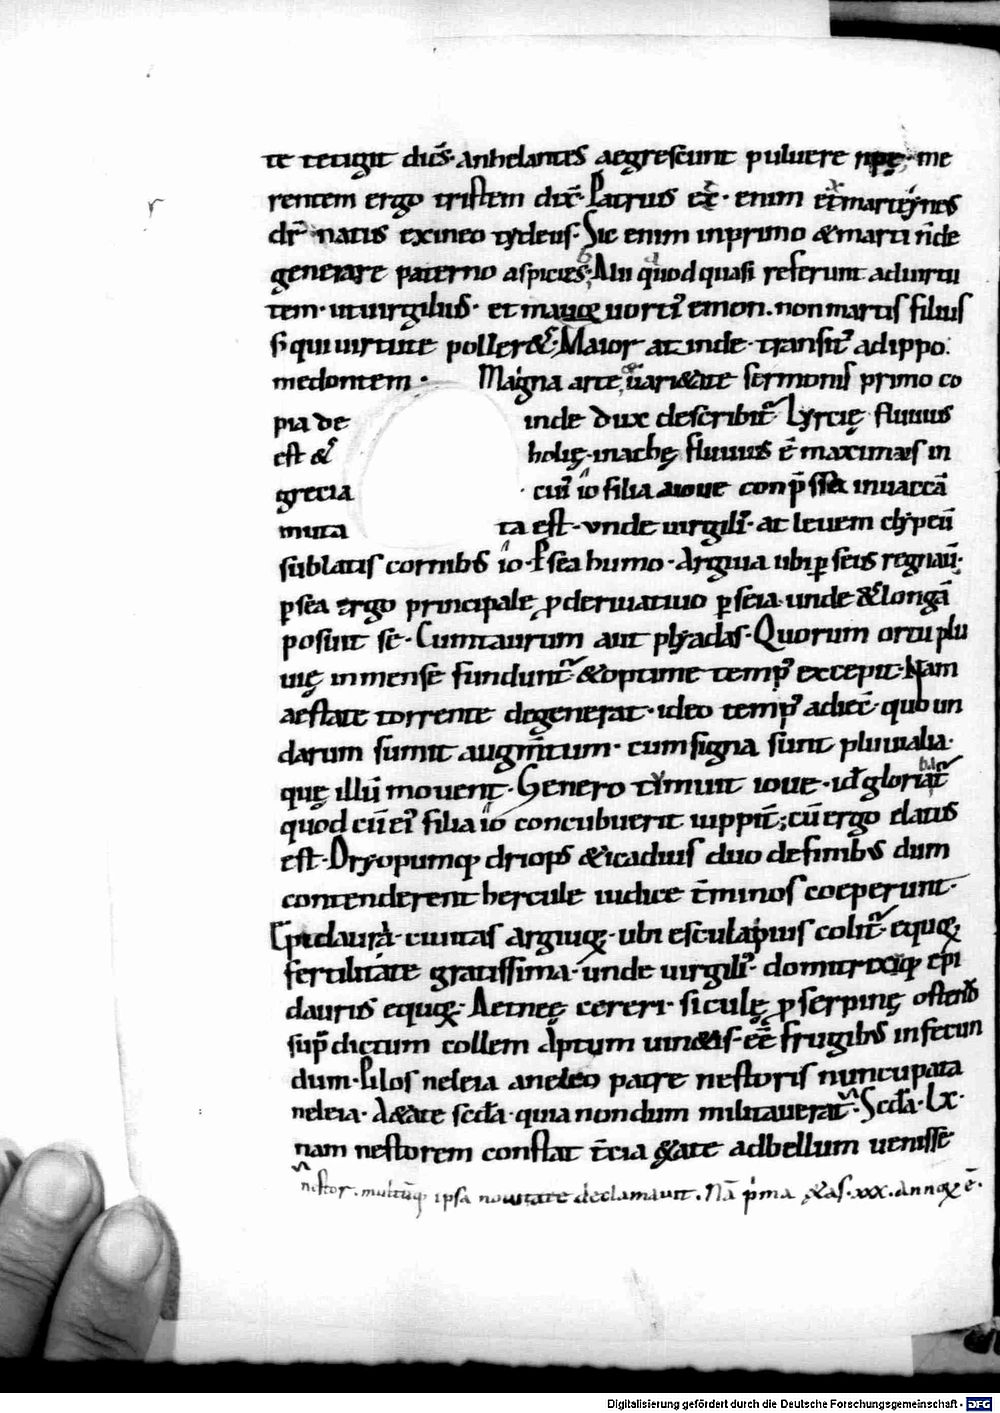 te tetigit dūs. anhelantes aegrescunt puluere ripę. me
rentem ergo tristem dix̄. Patrius ex̄. enim et marti ynes
dr̄ natus ex ineo tydeus. Sic enim in primo & marti ride
generare paterno aspicies; Alii quod quasi referunt ad uirtu
tem. ut uirgilius. et mauorti emon. non martis filius
s; qui uirtute polleret. Maior at inde. transit ad ippo.
medontem. Magna arte uari&ate sermonis primo co
pia de inde dux describit. Lyrcię fluuius
est & holię. inachę fluuius ē maximus in
grecia . cui io filia a ioue conp̄ssa in uaccā
muta ta est. vnde uirgili. at leuem clypeū
sublatis cornibus io. Psea humo. Argiua ubi pseus regnau.
psea ergo principale pderiuatiuo pseia. unde & longā
posuit se. Cum taurum aut plyadas. Quorum ortu plu
uię inmense fundunt. & optime temp excepit. Nam
aestate torrente degenerat. ideo temp adiec. quo un
darum sumit augmtum. cum signa sunt pluuialia.
quę illū mouent. Genero timuit ioue. id gloriat
quod cū ei filia io concubuerit iuppit; cū ergo elatus
est. Dryopumq driops & icadius duo de finibus dum
contenderent hercule iudice tminos coeperunt.
Epidaura. ciuitas argiuę. ubi esculapius colit. equę
fertilitate gratissima. unde uirgili. domitrixq epi
daurus equę. Aetnę cereri. siculę pserpinę ostendus
sup dictum collem aptum uin&is. eē frugibus infecun
dum. Pilos neleia aneleo patre nestoris nuncupata
neleia. A&ate scda. quia nondum militauerat. Scda. Lx.
nam nestorem constat tcia &ate ad bellum uenisse
nestor. multūq ipsa nouitate declamauit. Nā pma &as. xxx. annoꝝ ē.
Digitalisierung gefördert durch die Deutsche Forschungsgemeinschaft - DFG